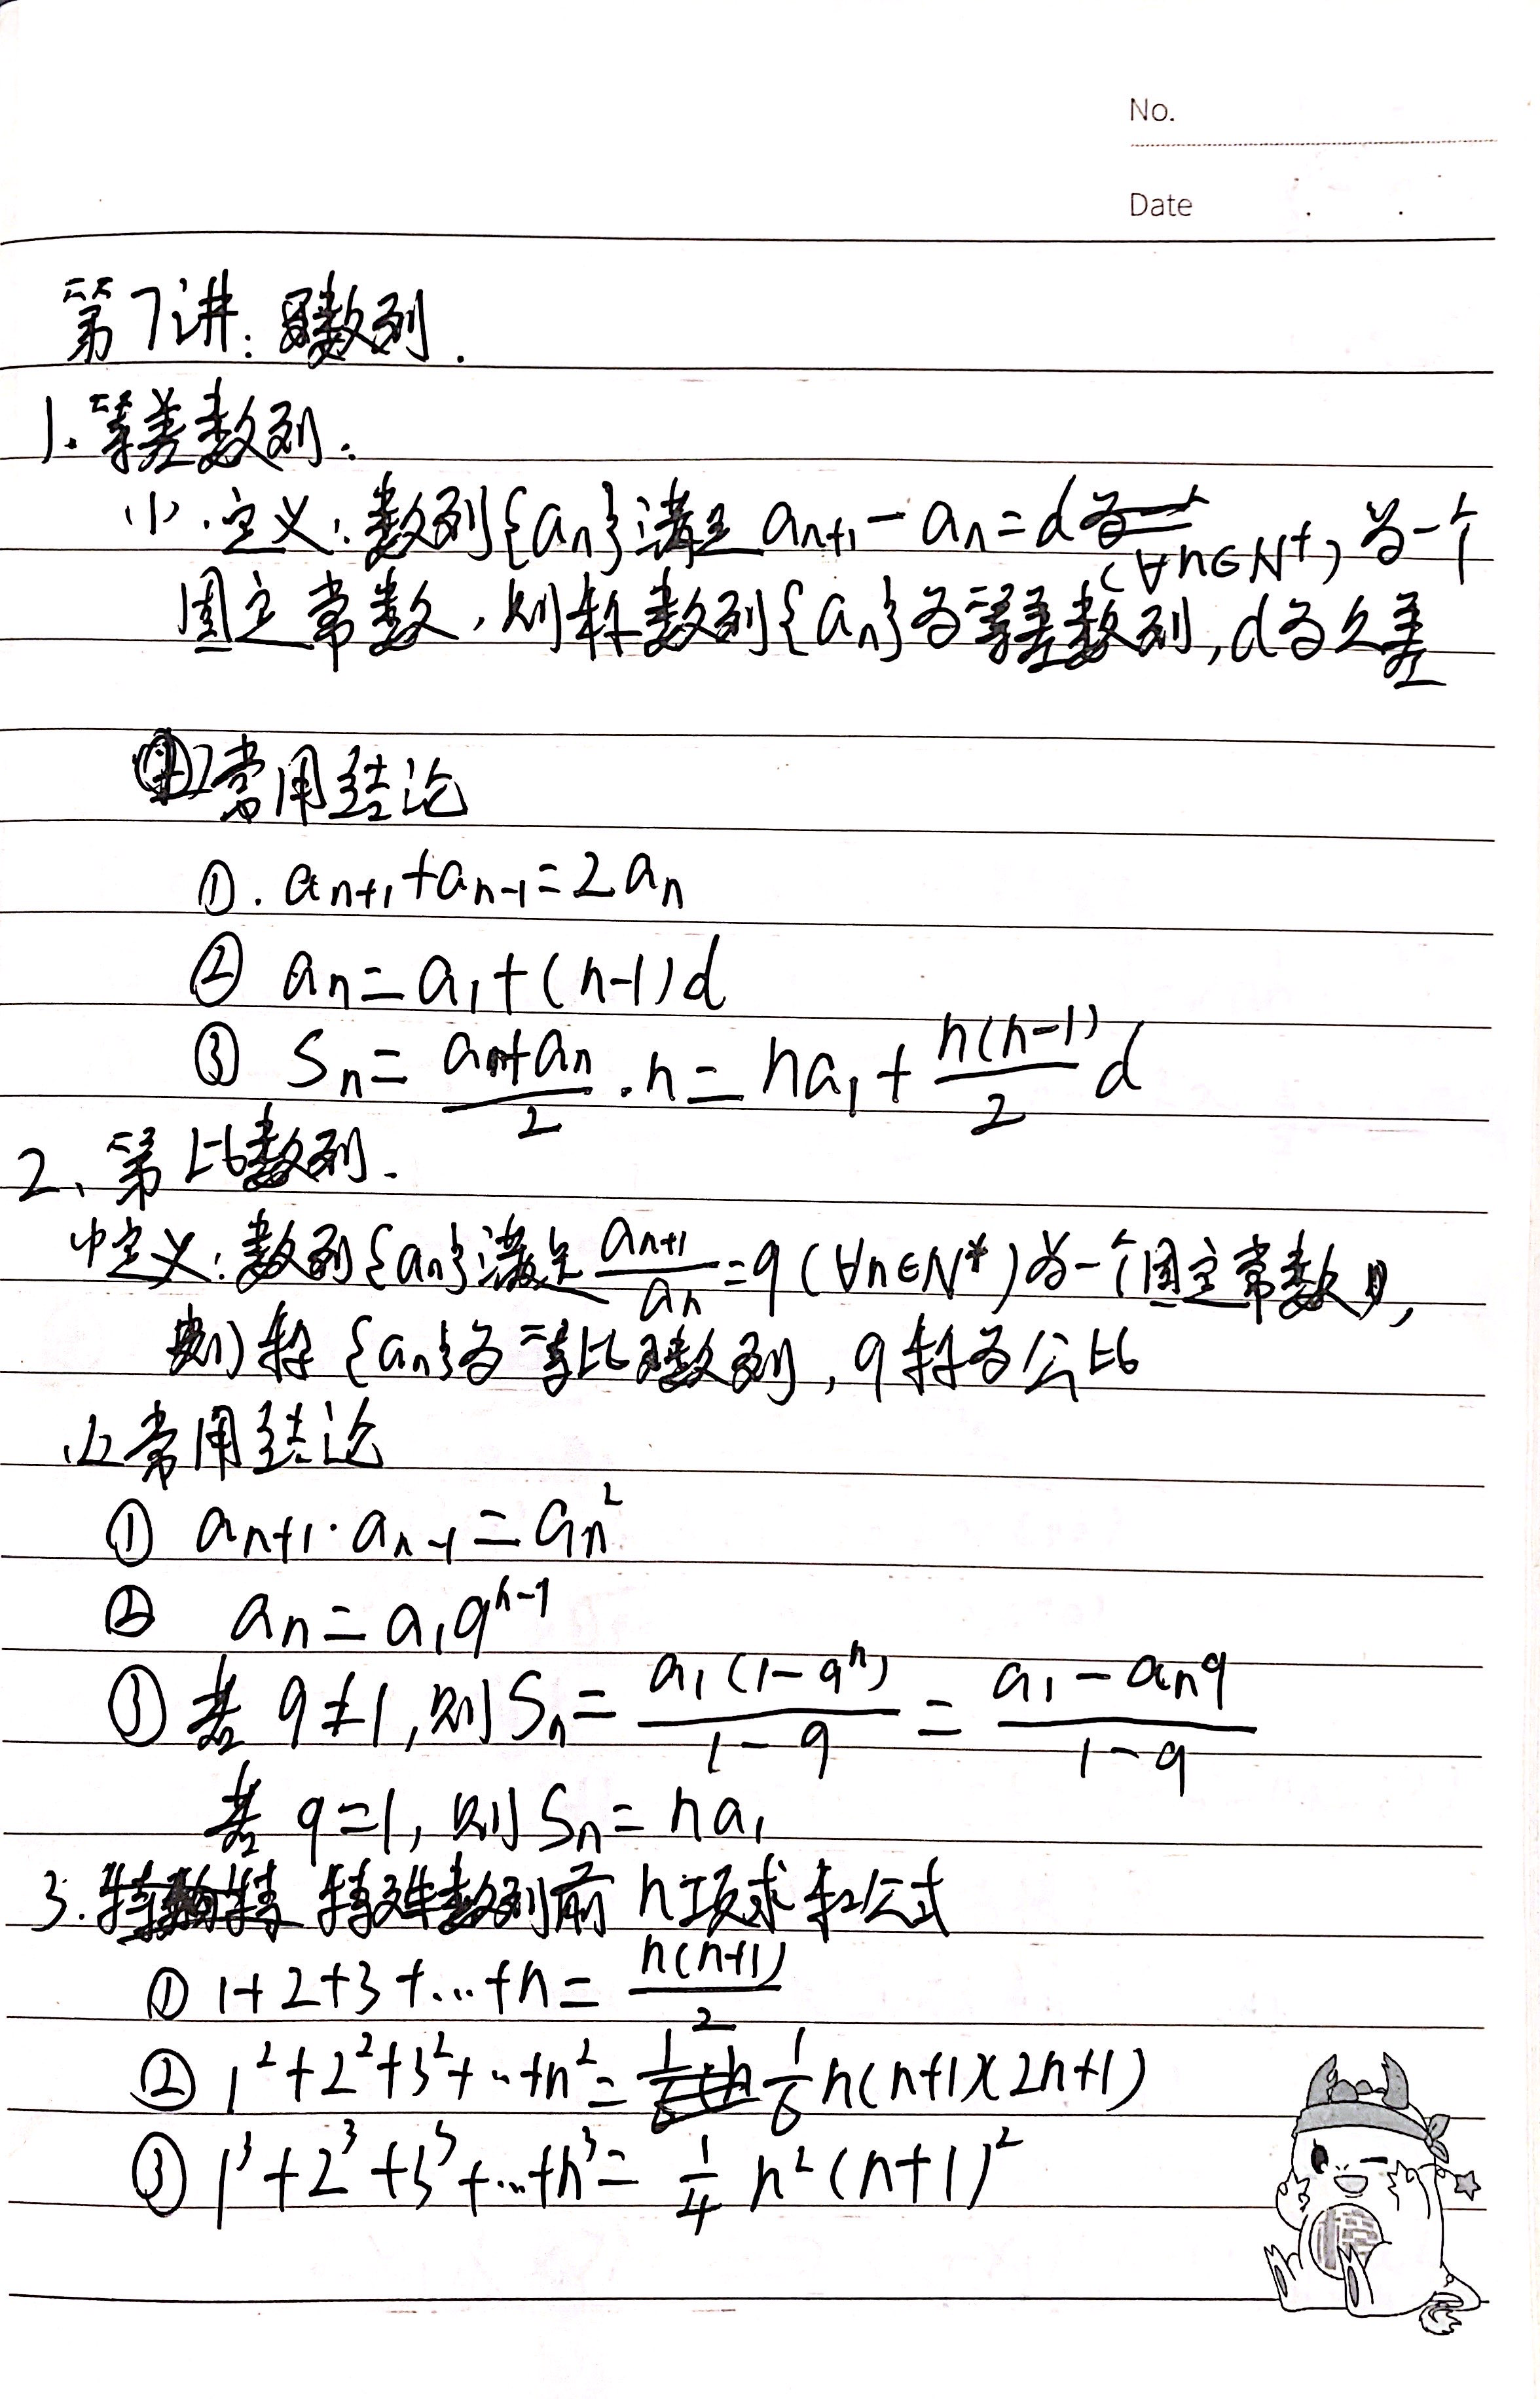 No.
Date
第7讲:数列.
1.等差数列.
(1).定义:数列{aₙ}满足 aₙ₊₁-aₙ=d (∀n∈N⁺) 为一个
固定常数,则称数列{aₙ}为等差数列,d为公差
(2)常用结论
①. aₙ₊₁+aₙ₋₁=2aₙ
② aₙ=a₁+(n-1)d
③ Sₙ=(a₁+aₙ)/2·n=na₁+n(n-1)/2 d
2、等比数列.
(1)定义:数列{aₙ}满足 aₙ₊₁/aₙ=q (∀n∈N*)为一个固定常数,
则称{aₙ}为等比数列,q称为公比
(2)常用结论
① aₙ₊₁·aₙ₋₁=aₙ²
② aₙ=a₁qⁿ⁻¹
③ 若 q≠1,则Sₙ=a₁(1-qⁿ)/(1-q)=(a₁-aₙq)/(1-q)
若 q=1,则Sₙ=na₁
3.特殊数列前n项求和公式
① 1+2+3+…+n=n(n+1)/2
② 1²+2²+3²+…+n²=1/6 n(n+1)(2n+1)
③ 1³+2³+3³+…+n³=1/4 n²(n+1)²